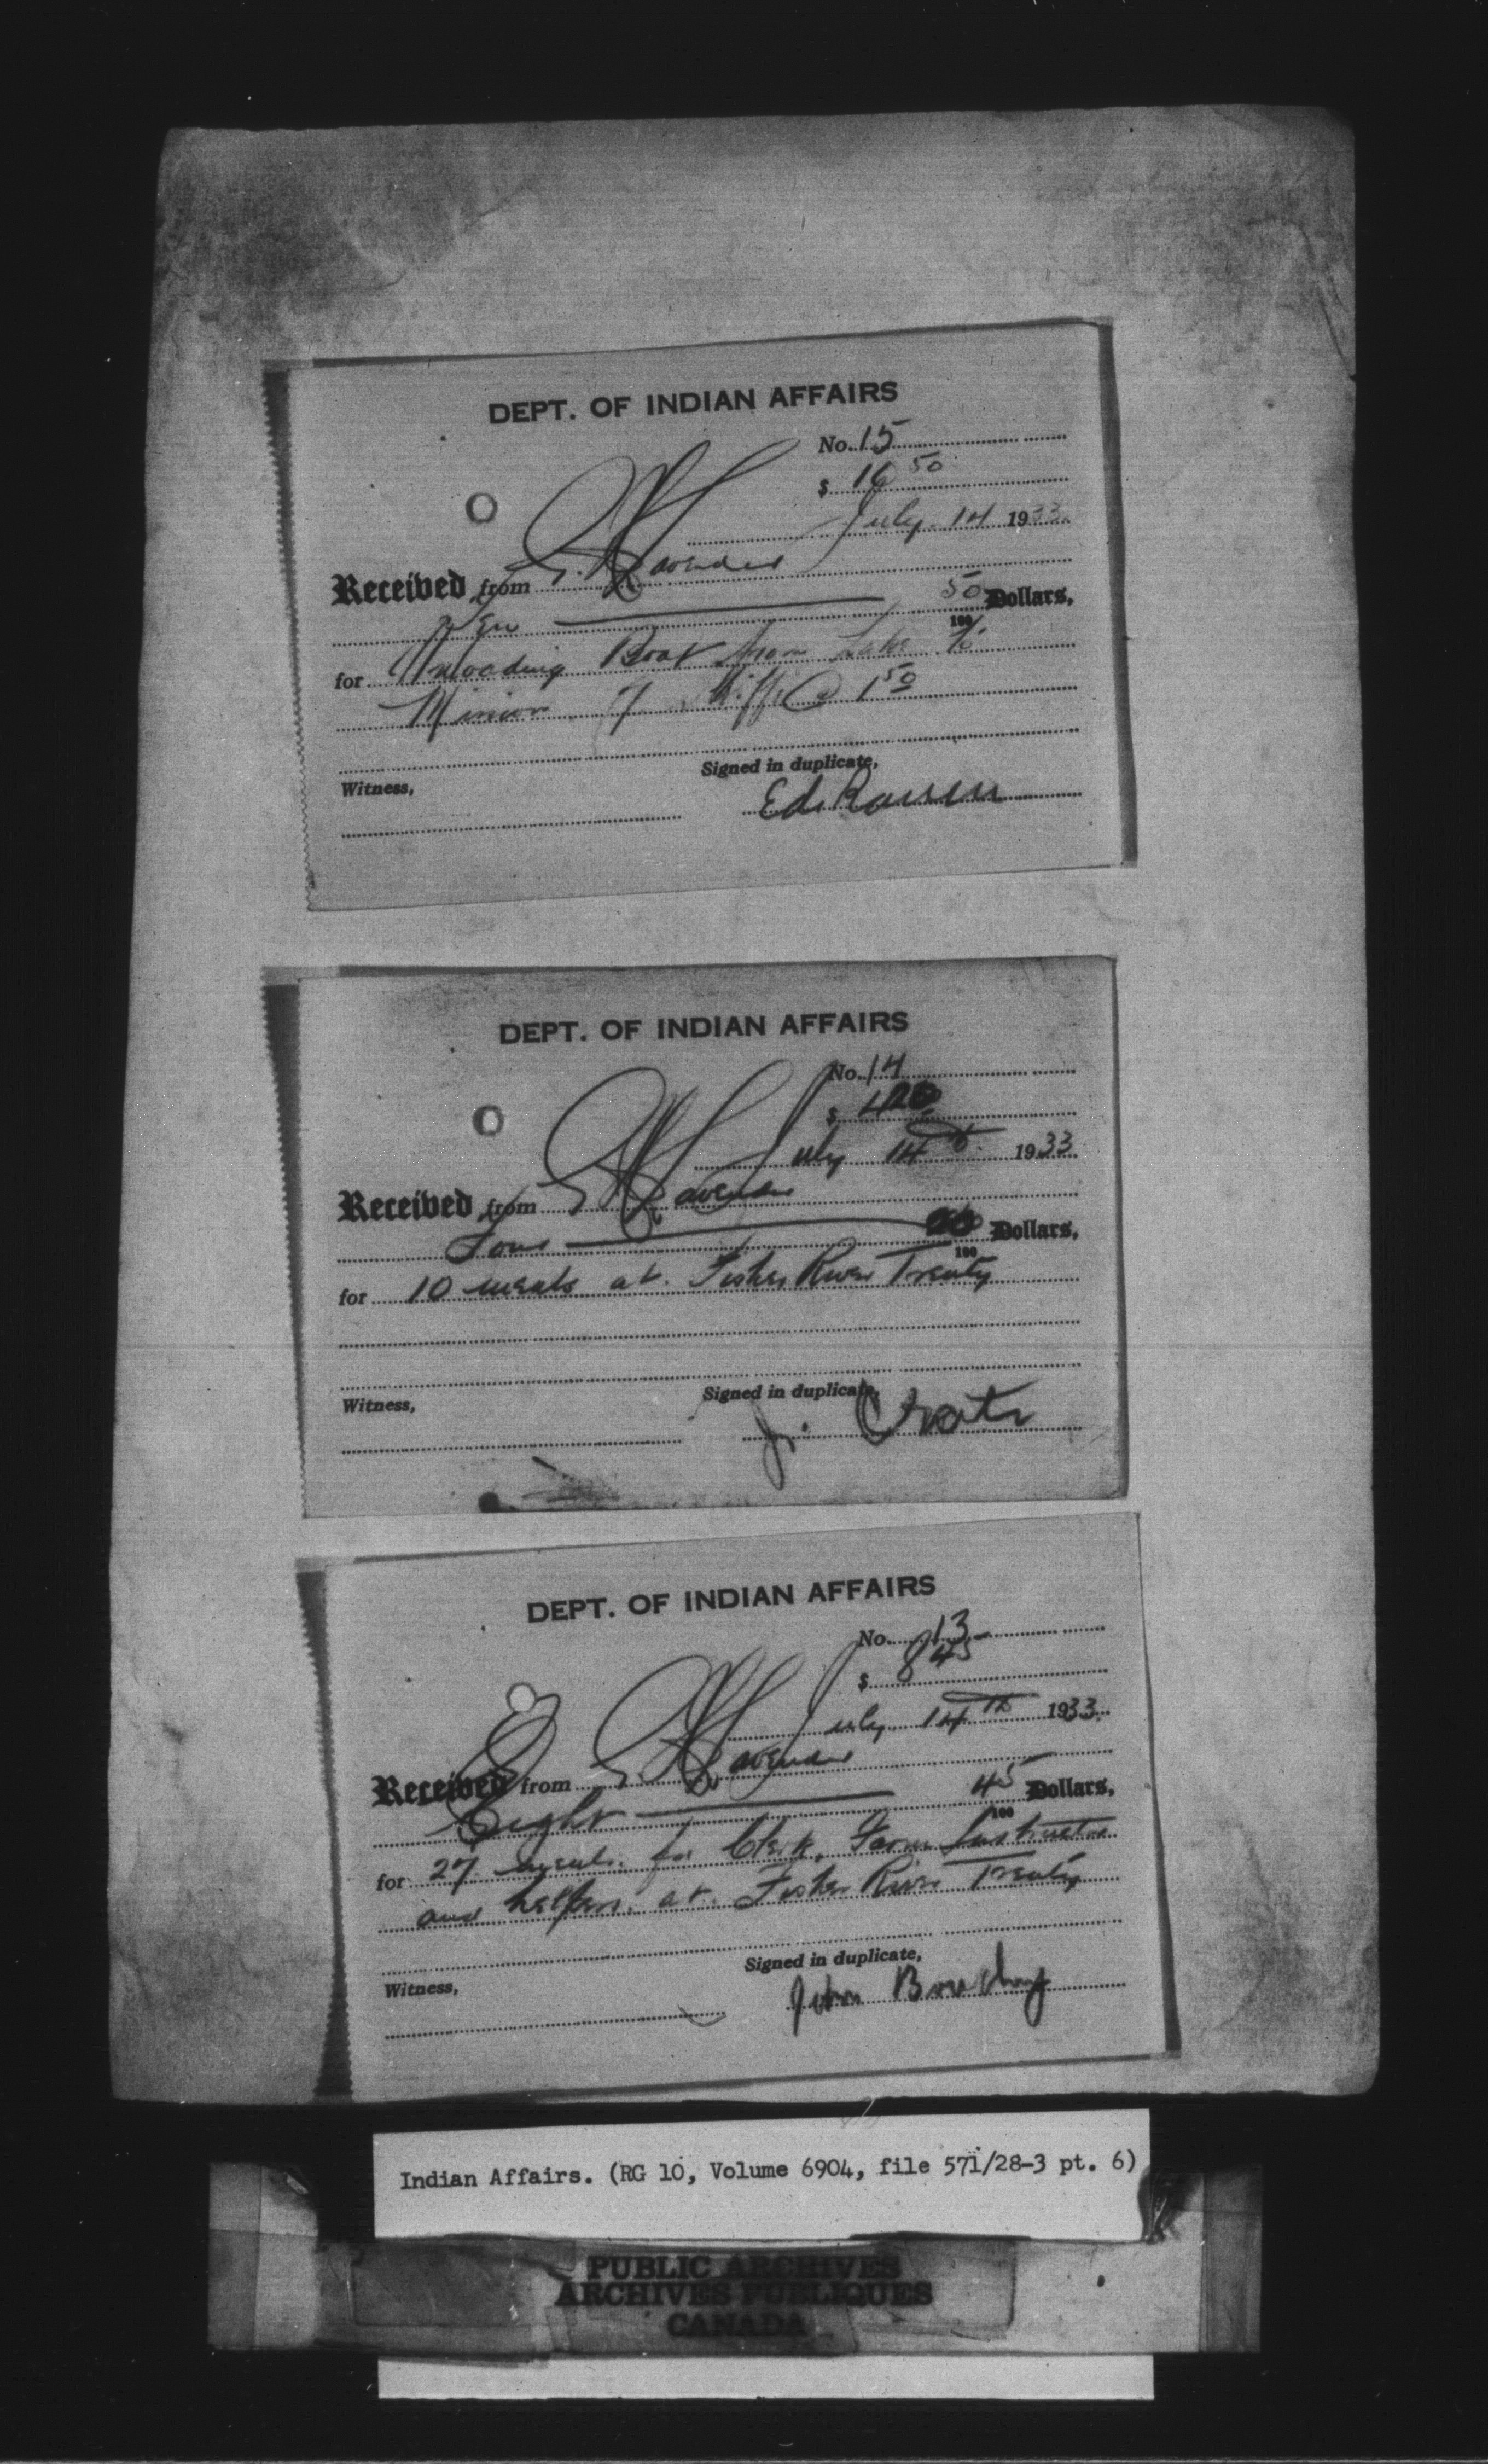 DEPT. OF INDIAN AFFAIRS
No. 15
$ 10 50
July 14 1933
Received from G. Lavender
Ten 50/100 Dollars,
for Unloading Boat from Lake to
7 Skiffs @ 1 50
Signed in duplicate,
Witness,
Ed
DEPT. OF INDIAN AFFAIRS
No. 14
$ 4
July 14th 1933
Received from G Lavender
Four 100 Dollars,
for 10 meals at Fisher River Treaty
Signed in duplicate,
Witness,
J.
DEPT. OF INDIAN AFFAIRS
No. 13
$ 8 45
July 14th 1933
Received from G Lavender
Eight 45/100 Dollars,
for 27 meals for Clerk, Farm Instructor
and helpers at Fisher River Treaty
Signed in duplicate,
Witness,
John
Indian Affairs. (RG 10, Volume 6904, file 571/28-3 pt. 6)
PUBLIC ARCHIVES
ARCHIVES PUBLIQUES
CANADA